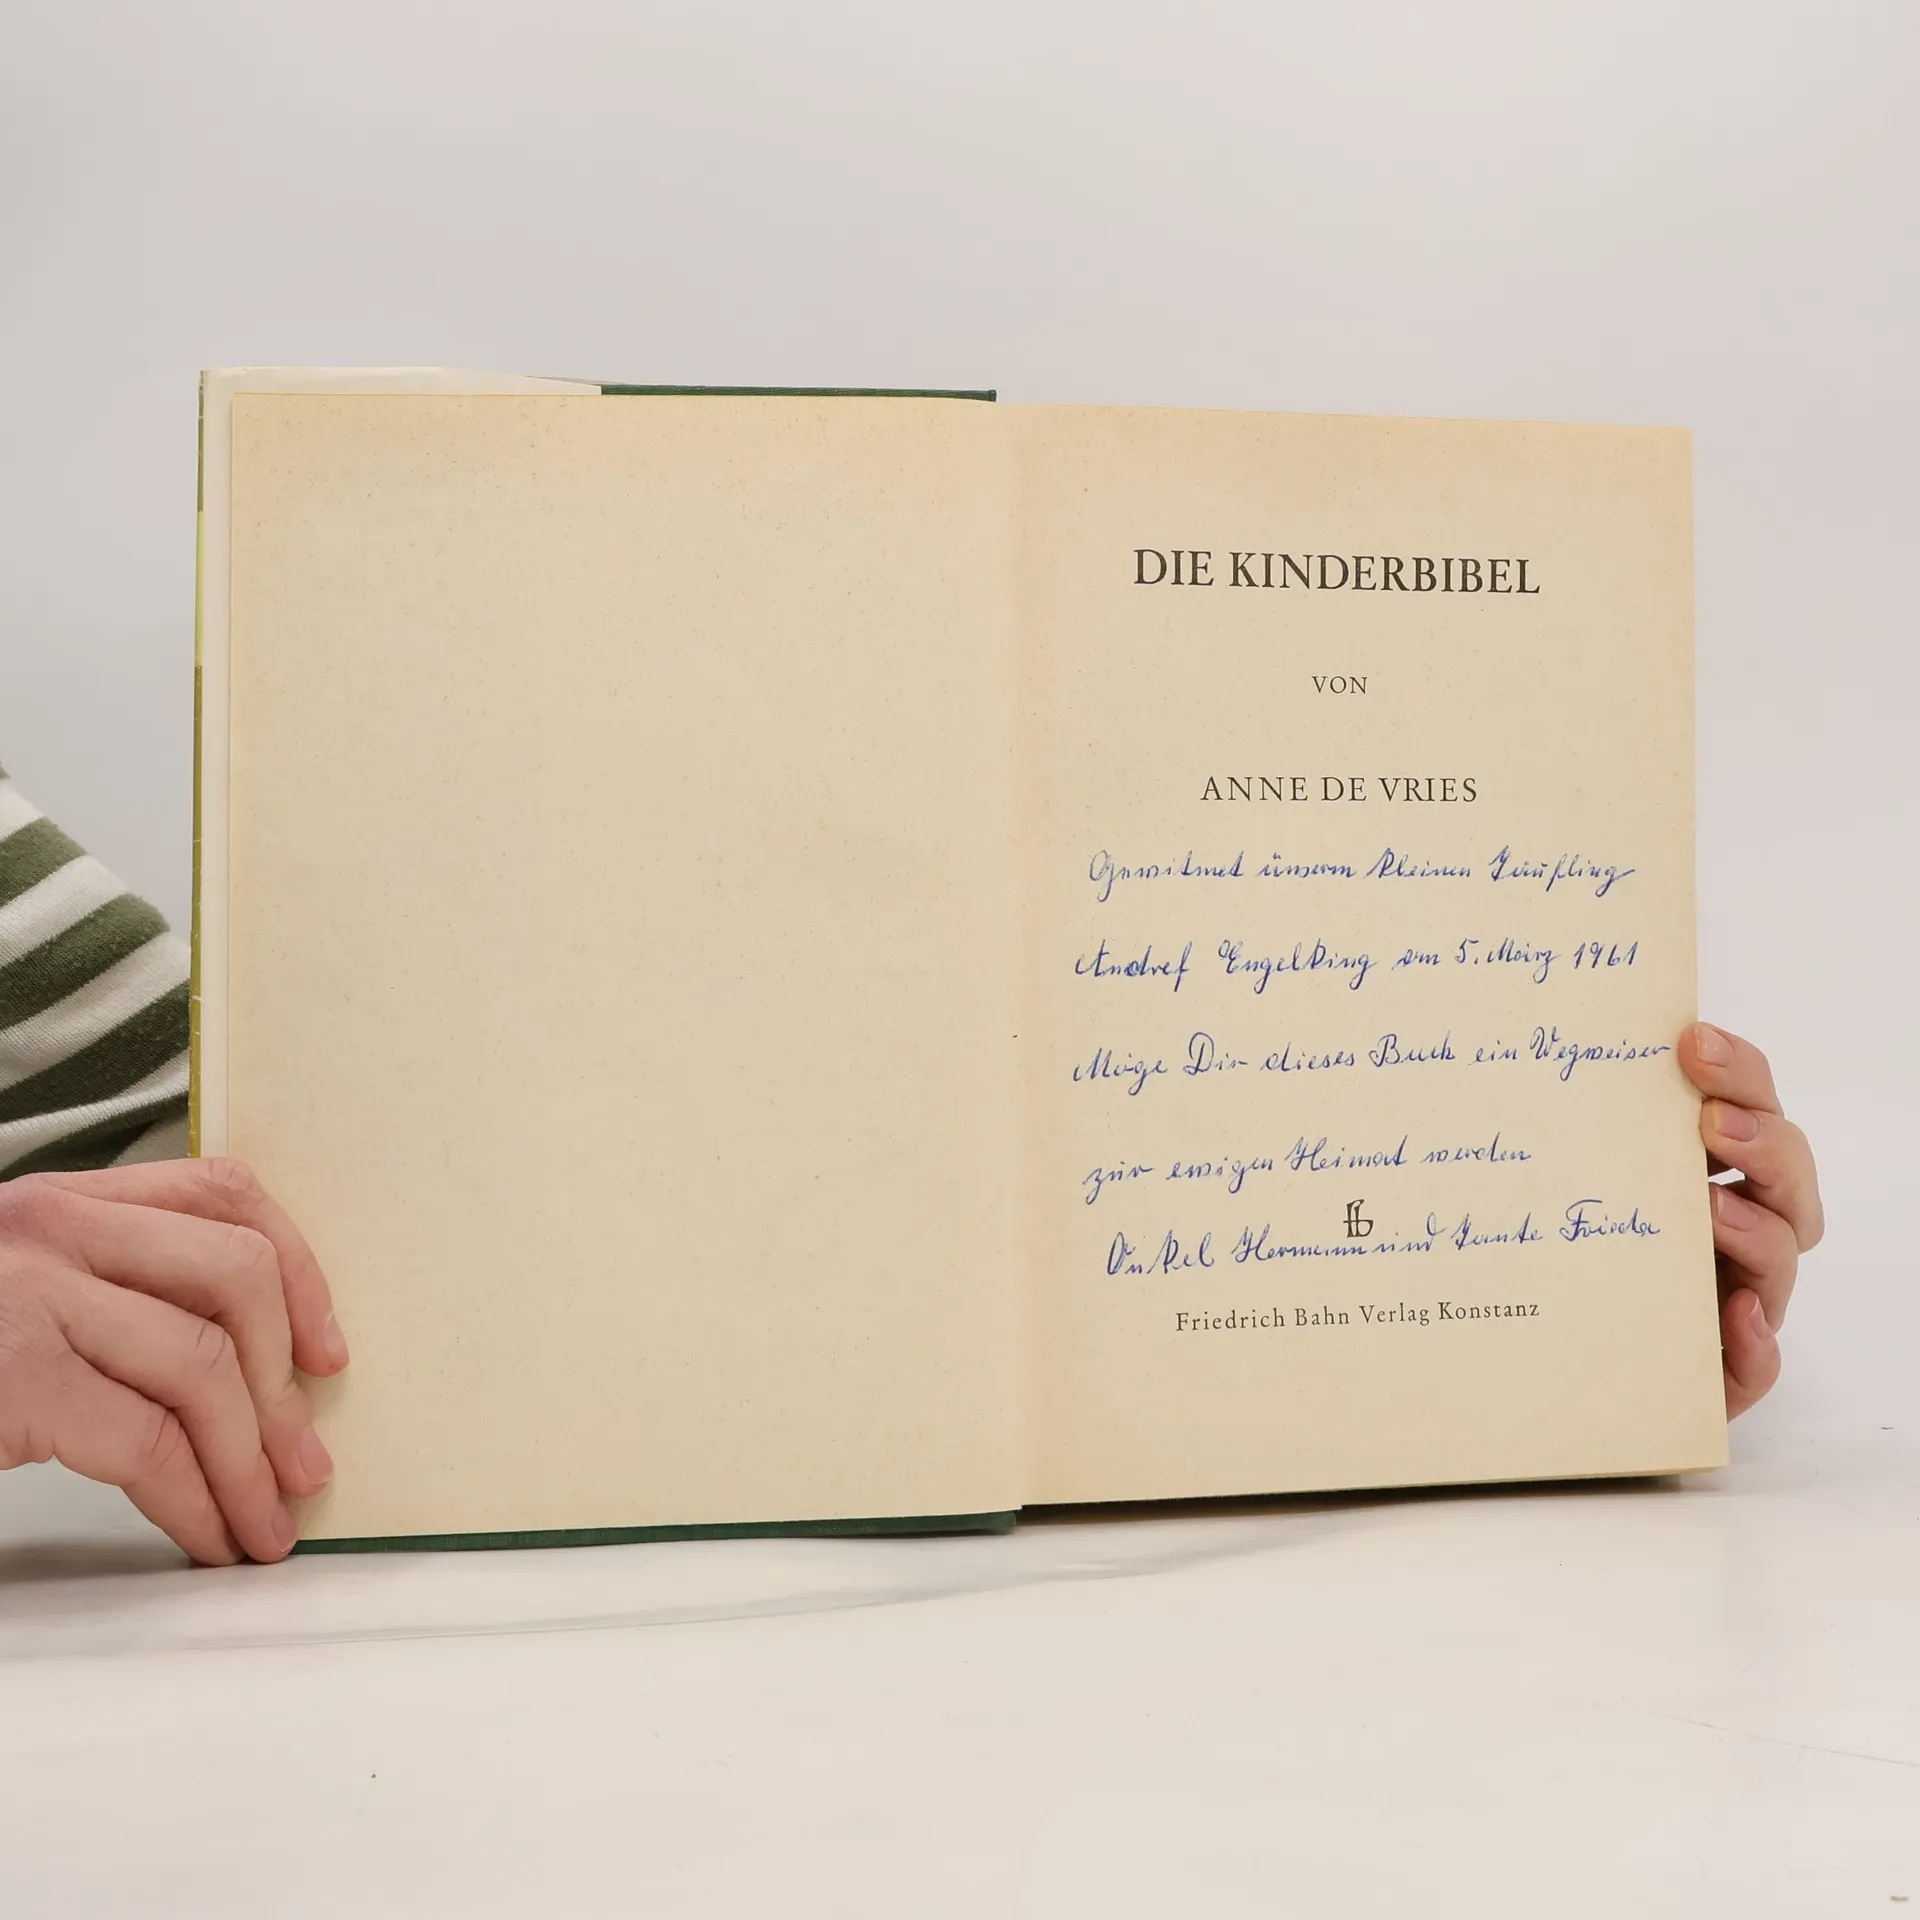 DIE KINDERBIBEL
VON
ANNE DE VRIES
Gewitmet ünserm kleinen Täufling
Andref Engelking am 5. März 1961
Möge Dir dieses Buch ein Wegweiser
zür ewigen Heimat werden
fb
Onkel Hermann und Tante Frieda
Friedrich Bahn Verlag Konstanz